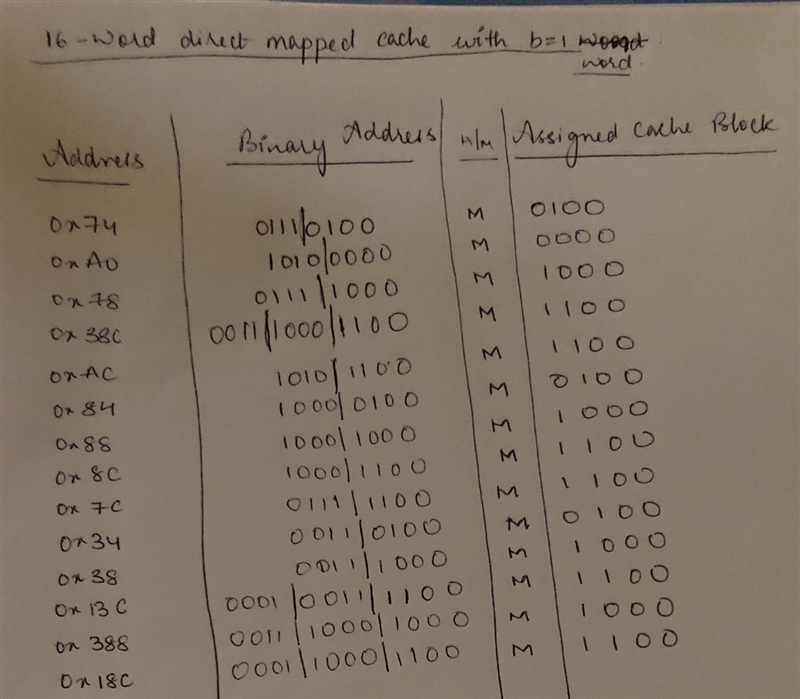 16-word direct mapped cache with b=1
word
Address Binary Address H/M Assigned Cache Block
0x74 0111/0100 M 0100
0xA0 1010/0000 M 0000
0x78 0111/1000 M 1000
0x38C 0011/1000/1100 M 1100
0xAC 1010/1100 M 1100
0x84 1000/0100 M 0100
0x88 1000/1000 M 1000
0x8C 1000/1100 M 1100
0x7C 0111/1100 M 1100
0x34 0011/0100 M 0100
0x38 0011/1000 M 1000
0x13C 0001/0011/1100 M 1100
0x388 0011/1000/1000 M 1000
0x18C 0001/1000/1100 M 1100